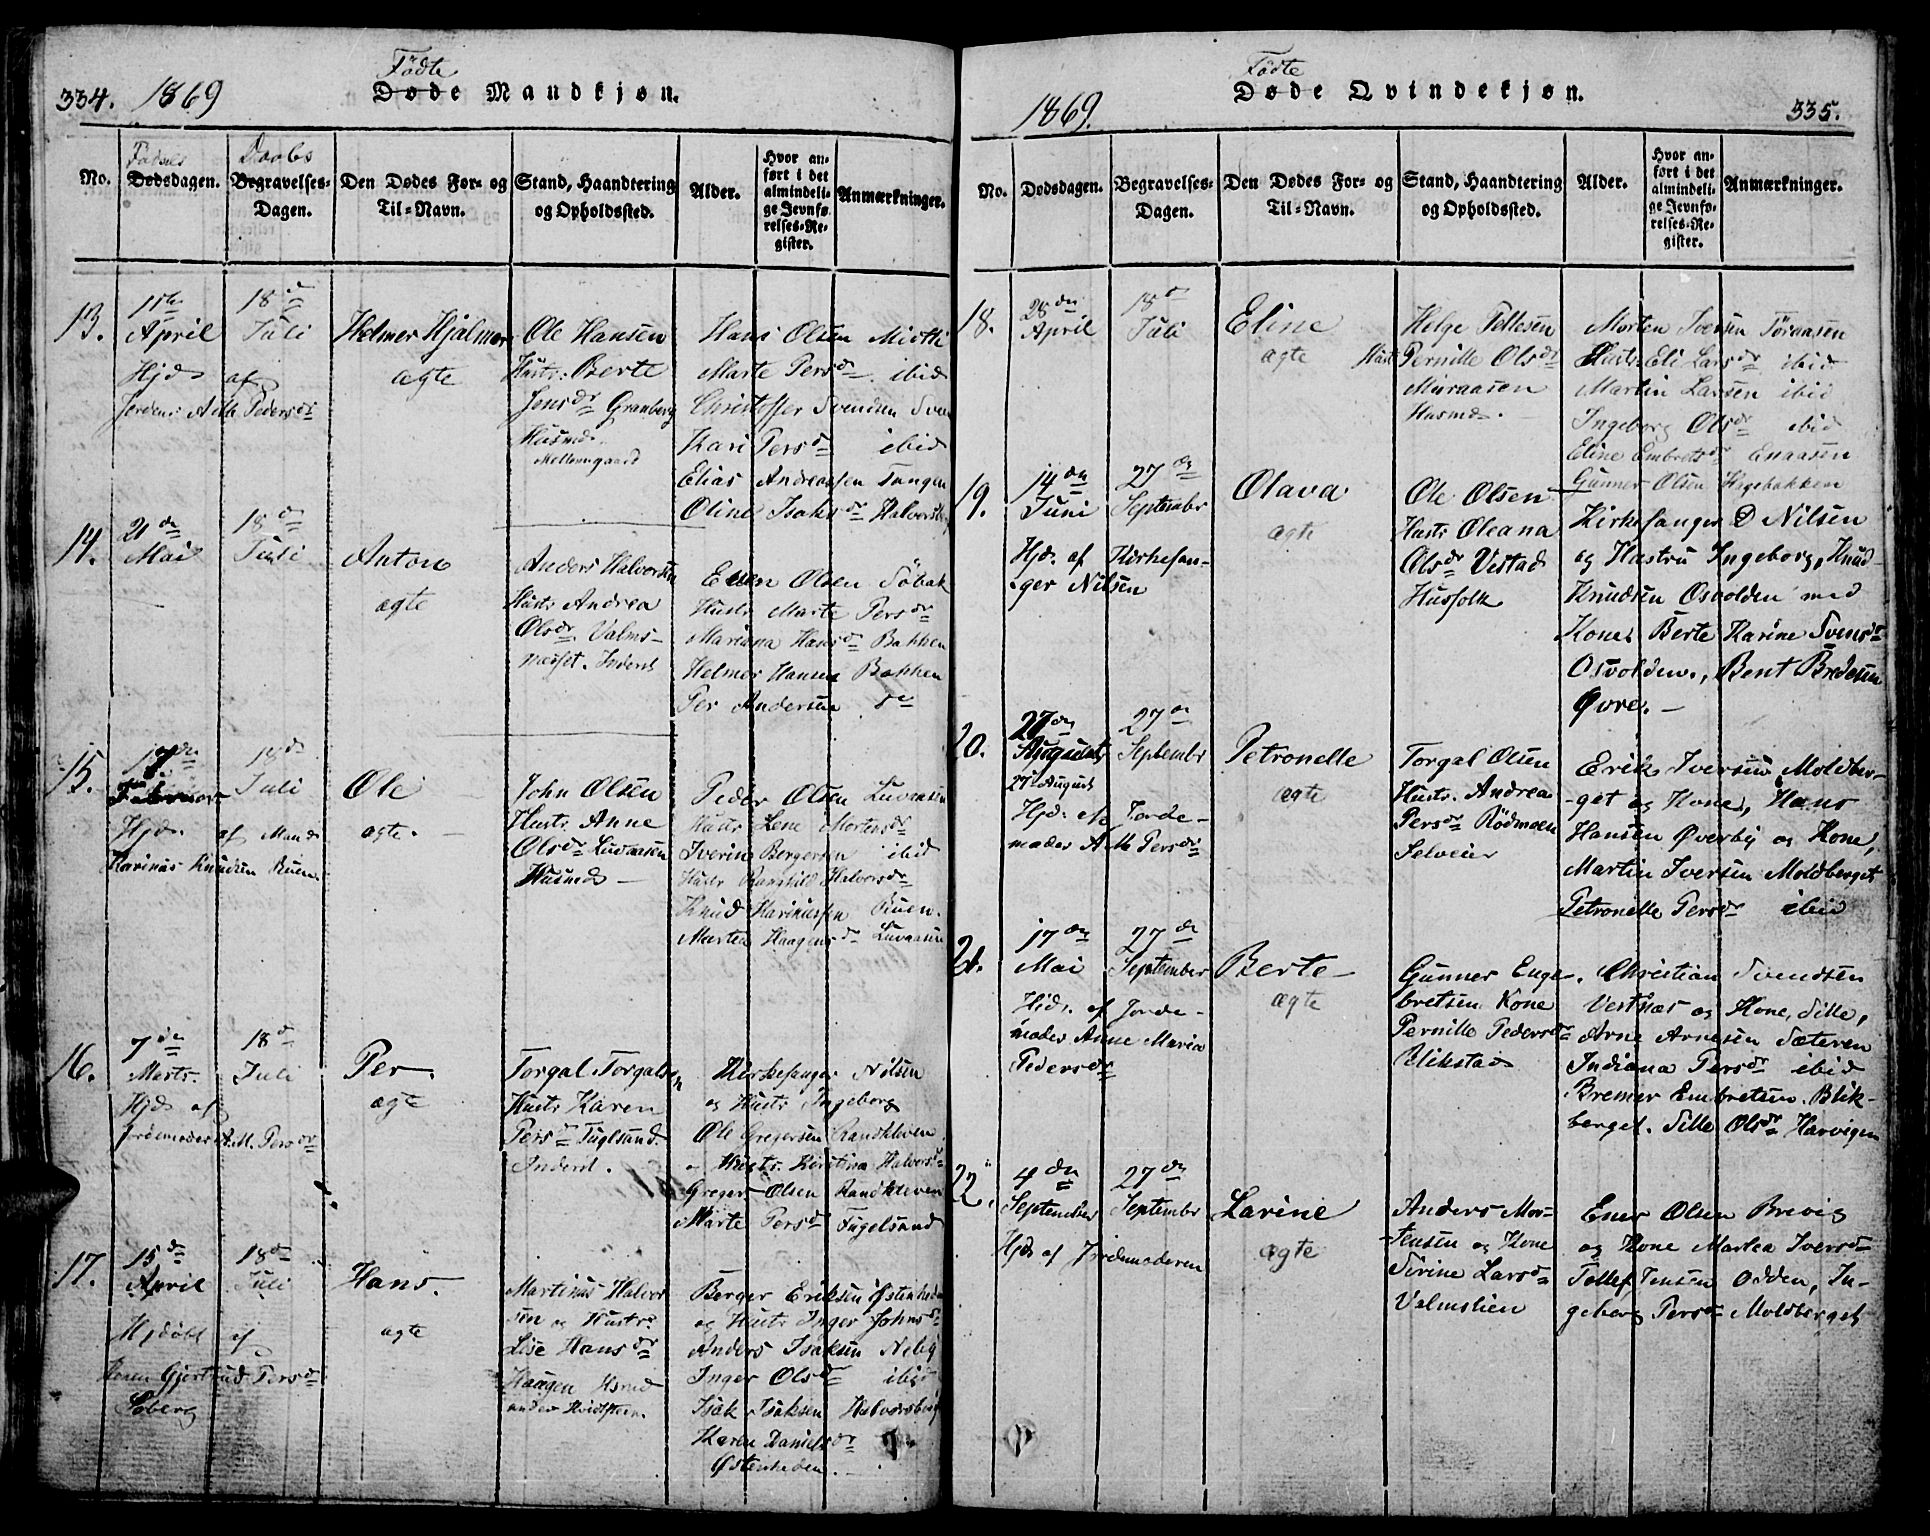 334. 1869
Födte
Døde Mandkjøn.
No.
Fødsels
Dødsdagen.
Daabs
Begravelses-
Dagen.
Den Dødes For- og
Til-Navn.
Stand, Haandtering
og Opholdssted.
Alder.
Hvor an-
ført i det
almindeli-
ge Jevnfø-
relses-Re-
gister.
Anmærkninger.
13.
11te
April
18de
Juli
Hjd af
Jordem: A Pedersdr
Helmer Hjalmer
ægte
Ole Hansen
Hustr: Berte
Jensdr Granberg
Husmd.
Mellemgaard
Hans Olsen Midtli
Marte Persdr ibid
Christoffer Svendsen
Kari Persd ibid
Elias Andreassen Tangen
Oline Isaksdr Halvorsberg
14.
21de
Mai
18de
Juli
Anton
ægte
Anders Halvorsen
Hustr Andrea
Olsdr Valms-
næsset. Inderst
Even Olsen Söbak
Hustr Marte Persdr
Mariana Hansd Bakken
Helmer Hansen Bakken
Per Andersen do
15.
18d
Juli
Ole
ægte.
Hjd. af Mand
Karinus Knudsen Ruen.
John Olsen
Hustr Anne
Olsdr Luvaasen
Husmd
Peder Olsen Luvaasen
Hustr Lene Mortensdr
Iverin Bergersen ibid
Hustr Ranghild Halvorsdr
Knud Karinussen Ruen.
Martea Haagensd Luvaasen
16.
7de
Marts.
18d
Juli
Hjd af
jordemoder A.M. Persdr
Per.
ægte
Torgal Torgalsen
Hustr Karen
Persd Fuglsand.
Inderst.
Kirkesanger Nilsen
og Hustr Ingeborg
Ole Gregersen Randkleven
og Hustr. Kirstina Halvorsd
Greger Olsen Randkleven
Marte Persd Fugelsand
17.
15de
April
18de
Juli
Hjdöbt af
Karen Gjertrud Persdr
Søberg
Hans.
ægte
Martinus Halvor
sen og Hustr:
Lise Hansdr
Haugen Hsmd
under Hvidsteen.
Berger Eriksen Østenheden
og Hustr Inger Johnsd
Anders Isaksen Neby
Inger Olsdr ibid
Isak Isaksen Halvorsberg
Karen Danielsdr
Østenheden.
1869.
Födte
Døde Qvindekjøn.
335.
No.
Dødsdagen.
Begravelses-
Dagen.
Den Dødes For- og
Til-Navn.
Stand, Haandtering
og Opholdssted.
Alder.
Hvor an-
ført i det
almindeli-
ge Jevnfø-
relses-Re-
gister.
Anmærkninger.
18.
28de
April
18d
Juli
Eline
ægte
Helge Tellesen
Hust Pernille Olsdr
Moraasen
Husmd.
Morten Iversen Töraasen
Hustr Eli Larsdr ibid
Martin Larsen ibid
Ingeborg Olsdr ibid
Eline Embretsdr Enaasen
Gunner Olsen Hagebakken
19.
14de
Juni
27de
September
Hjd. af Kirkesan-
ger Nilsen
Olava
ægte
Ole Olsen
Hustr Oleana
Olsdr Vestad
Husfolk
Kirkesanger D Nilsen
og Hustru Ingeborg, Knud
Knudsen Osvolden med
Kone Berte Karine Svensdr
Osvolden., Bent Bredesen
Øvre.
20.
27de
27 August
27de
September
Hjd. af Jorde-
moder A M Persdr
Petronelle
ægte
Torgal Olsen
Hustr. Andrea
Persdr Rödmoen
Selveier
Erik Iversen Moldber-
get og Kone, Hans
Hansen Øverby og Kone,
Martin Iversen Moldberget
Petronelle Persdr ibid
21.
17de
Mai
27de
September
Hjd. af Jorde-
moder Anne Maria
Pedersdr
Berte
ægte
Gunner Enge-
bretsen Kone
Pernille Pedersdr
Blikstad
Christian Svendsen
Vestnæs og Kone, Sille,
Arne Arnesen Sæteren
Indiana Persdr ibid
Bremer Embretsen. Blik-
berget. Sille Olsdr Harvigen
22.
4de
September
27de
September
Hjd af Jordemoderen
Larine
ægte
Anders Mor-
tensen og Kone
Sirine Larsdr
Valmslien
Ener Olsen Brevig
og Kone Martea Iversd
Tollef Jensen Odden, In-
geborg Persdr Moldberget